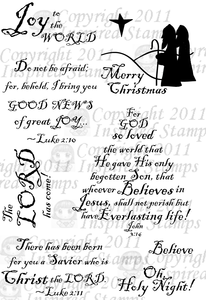 Joy to
the
WORLD
Do not be afraid;
for, behold, I bring you
GOOD NEWS
of great JOY...
~Luke 2:10
Merry
Christmas
For
GOD
so loved
the world that
He gave His only
begotten Son, that
whoever Believes in
Jesus, shall not perish but
have Everlasting life!
John
3:16
The
LORD
has come!
There has been born
for you a Savior who is
Christ the LORD.
~Luke 2:11
Believe
Oh,
Holy Night!
Copyright 2011
Inspired Stamps